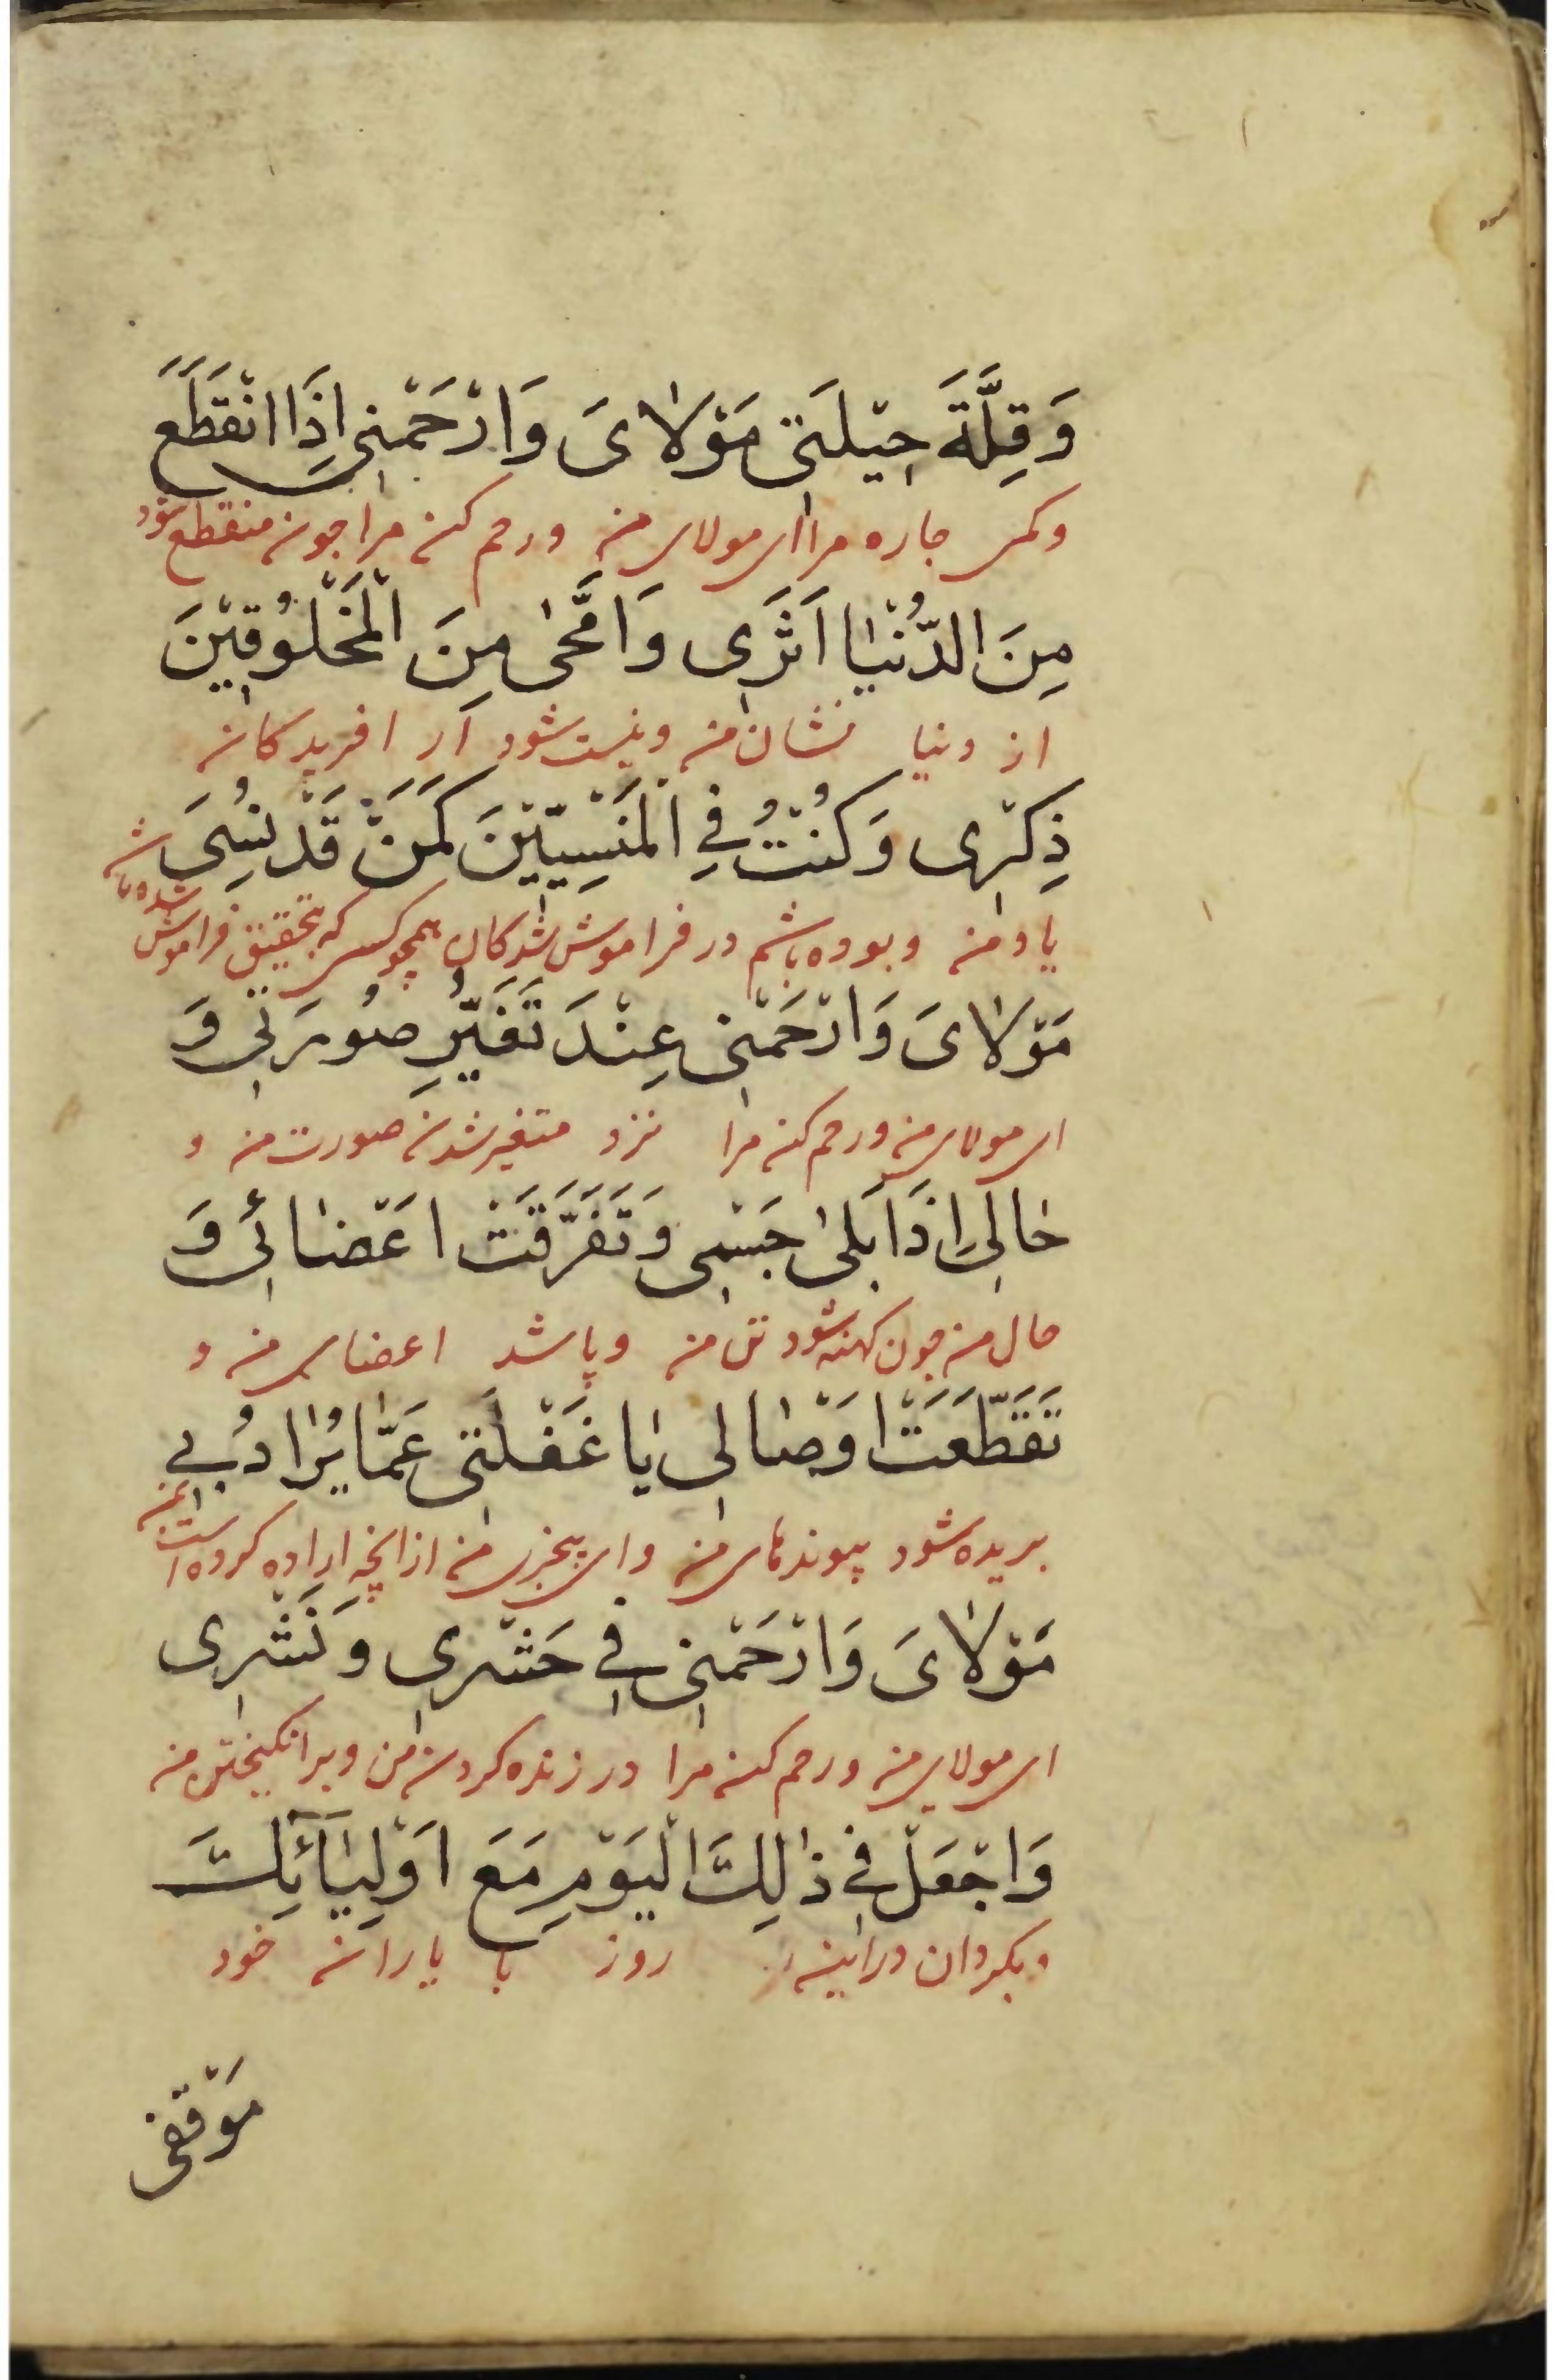 وَقِلَّةَ حِيْلَتِى مَوْلَاىَ وَارْحَمْنِى اِذَا انْقَطَعَ
وکمی جاره مرا ای مولای من ورحم کن مرا جون منقطع شود
مِنَ الدُّنْيَا اَثَرِى وَامَّحٰى مِنَ الْمَخْلُوْقِيْنَ
از دنیا نشان من ونیست شود از افریدکان
ذِكْرِى وَكُنْتُ فِى الْمَنْسِيِّيْنَ كَمَنْ قَدْ نُسِىَ
یاد من وبوده باشم در فراموش شدکان همچو کسی که بتحقیق فراموش شده باشد
مَوْلَاىَ وَارْحَمْنِى عِنْدَ تَغَيُّرِ صُورَتِى وَ
ای مولای من ورحم کن مرا نزد متغیر شدن صورت من و
حَالِى اِذَا بَلٰى جِسْمِى وَتَفَرَّقَتْ اَعْضَائِى وَ
حال من جون کهنه شود تن من وپاشد اعضای من و
تَقَطَّعَتْ اَوْصَالِى يَا غَفْلَتِى عَمَّا يُرَادُ بِى
بریده شود پیوندهای من وای بیخبری من از انچه اراده کرده است بمن
مَوْلَاىَ وَارْحَمْنِى فِى حَشْرِى وَنَشْرِى
ای مولای من ورحم کن مرا در زنده کردن من وبرانکیختن من
وَاجْعَلْ فِى ذٰلِكَ الْيَوْمِ مَعَ اَوْلِيَآئِكَ
وبکردان در این روز با یاران خود
مَوْقِفِى